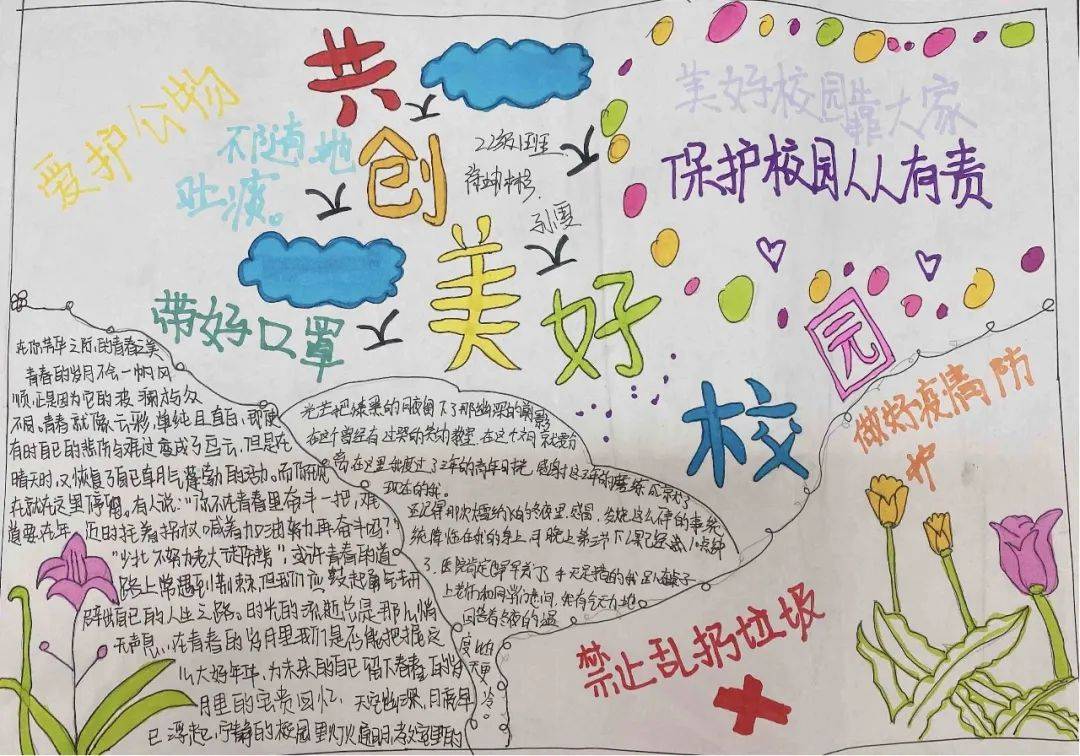 共创美好校园
爱护公物
不随地
吐痰。
22级1班
孙雯
美好校园靠大家
保护校园人人有责
带好口罩
做好疫情防
护
禁止乱扔垃圾
在你芳华之际,的青春之美
青春的岁月不会一帆风
顺正是因为它的波澜起伏
不同,青春就像云彩,单纯且直白,即便
有时自己的悲伤与难过变成了乌云,但是在
晴天时,又恢复了自己身月气蓬勃的活动。而你
在就在这里停留。有人说:“你不在青春里奋斗一把,难
道要在年 迈时拄着拐杖喊着加油努力再奋斗吗?”
“少壮不努力老大徒伤悲”;或许青春的道
路上常遇到荆棘,但我们应鼓起勇气去开
辟出自己的人生之路。时光的流逝总是那么悄
无声息,在青春的岁月里我们是否能把握定
么大好年华,为未来的自己留下青春的岁
月里的宝贵回忆。天空幽深,月亮早
已浮起,宁静的校园里灯火通明,教室里的
光芒把漆黑的夜留下了那幽深的
在这个曾经有过哭的笑的教室,在这个对 就要分
离,在这里我度过了3年的青年日程,感谢这3年的磨练成就了
现在的我。
还记得那次大雪纷飞的冬夜里,感冒,发烧这么碑的事统
统降临在我的身上,可晚上第三节下课已经点10点钟
了,医院肯定早早关了
上老师和同学的慰问,
度的
更
冷。